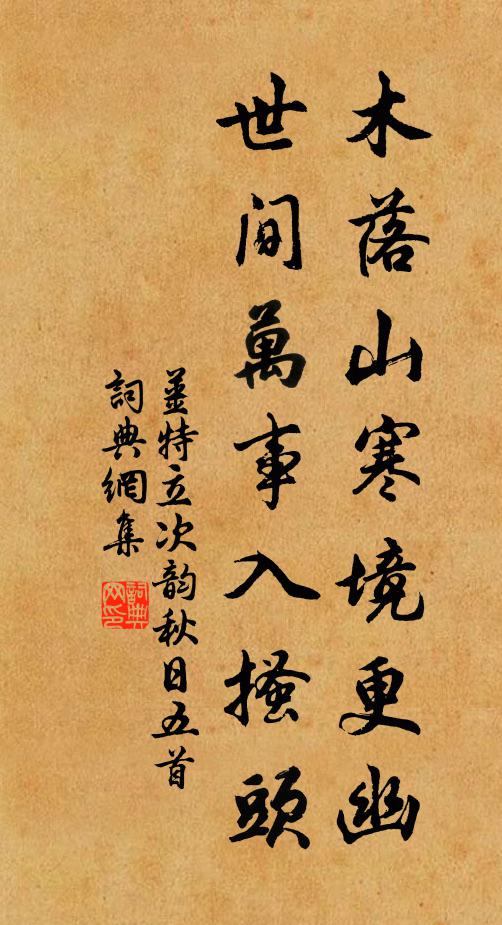 木落山寒境更幽
世间萬事入搔頭
姜特立次韵秋日五首
詞典網集
詞典
网印